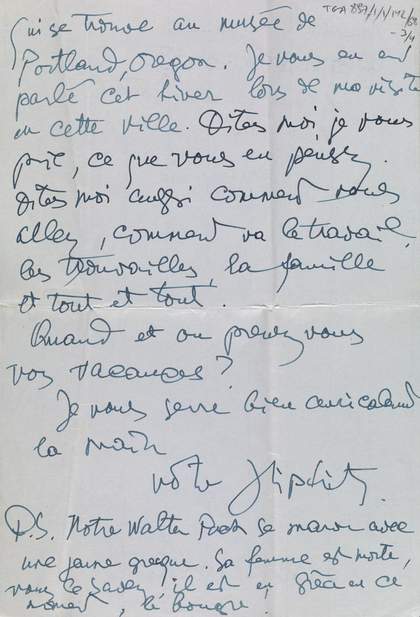 TGA 887/1/1/112/68
- 3/4
qui se trouve au musée de
Portland, Oregon. Je vous en ai
parlé cet hiver lors de ma visite
en cette ville. Dites moi, je vous
prie, ce que vous en pensez.
Dites moi aussi comment vous
allez, comment va le travail,
les trouvailles, la famille
et tout et tout.
Quand et ou prenez vous
vos vacances?
Je vous serre bien amicalement
la main
votre JLipchitz
P.S. Notre Walter se marie avec
une jeune grecque. Sa femme est morte,
vous le savez, il est en Grèce en ce
moment, le bougre.